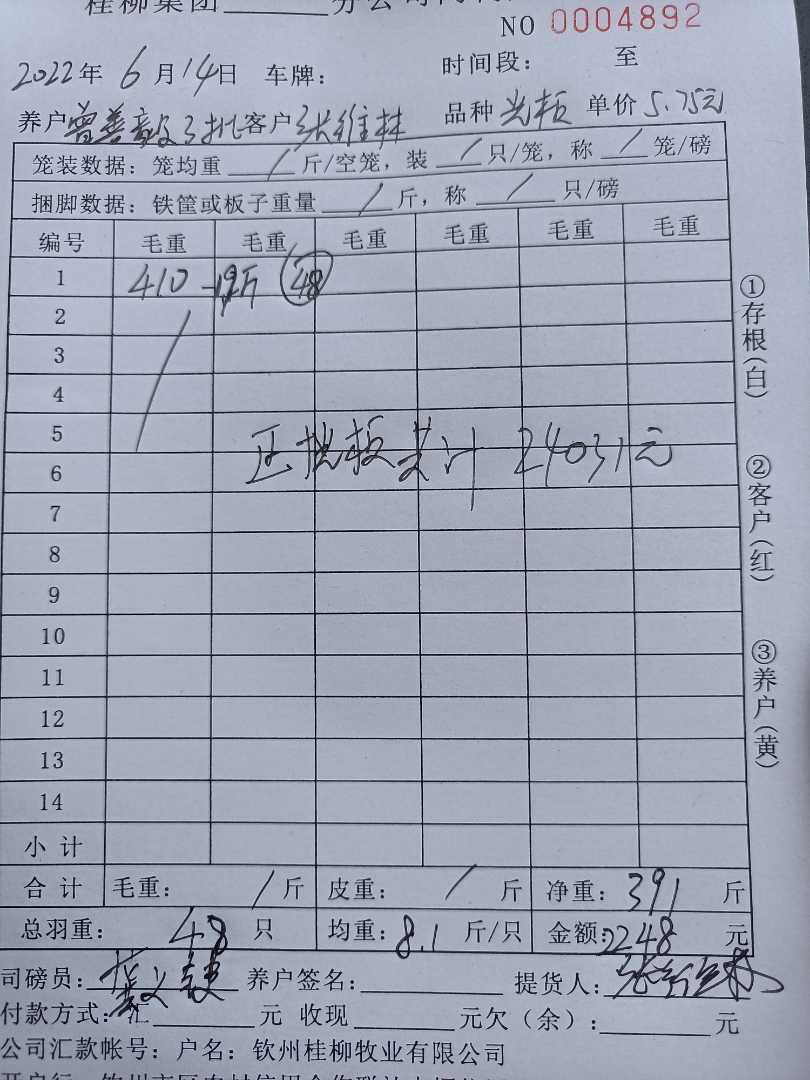 桂柳集团______分公司
NO 0004892
2022年 6月14日 车牌: 时间段: 至
养户曾善毅3批客户张维林 品种 单价5.75元
笼装数据: 笼均重 / 斤/空笼, 装 / 只/笼, 称 / 笼/磅
捆脚数据: 铁筐或板子重量 / 斤, 称 / 只/磅
编号 毛重 毛重 毛重 毛重 毛重 毛重
1 410 -19斤 48
2
3
4
5
正 板共计 24031元
6
7
8
9
10
11
12
13
14
小计
合计 毛重: / 斤 皮重: / 斤 净重: 391 斤
总羽重: 48 只 均重: 8.1 斤/只 金额: 2248 元
司磅员: 养户签名: 提货人: 张维林
付款方式: 汇______元 收现______元欠(余):______元
公司汇款帐号: 户名: 钦州桂柳牧业有限公司
①存根(白)
②客户(红)
③养户(黄)